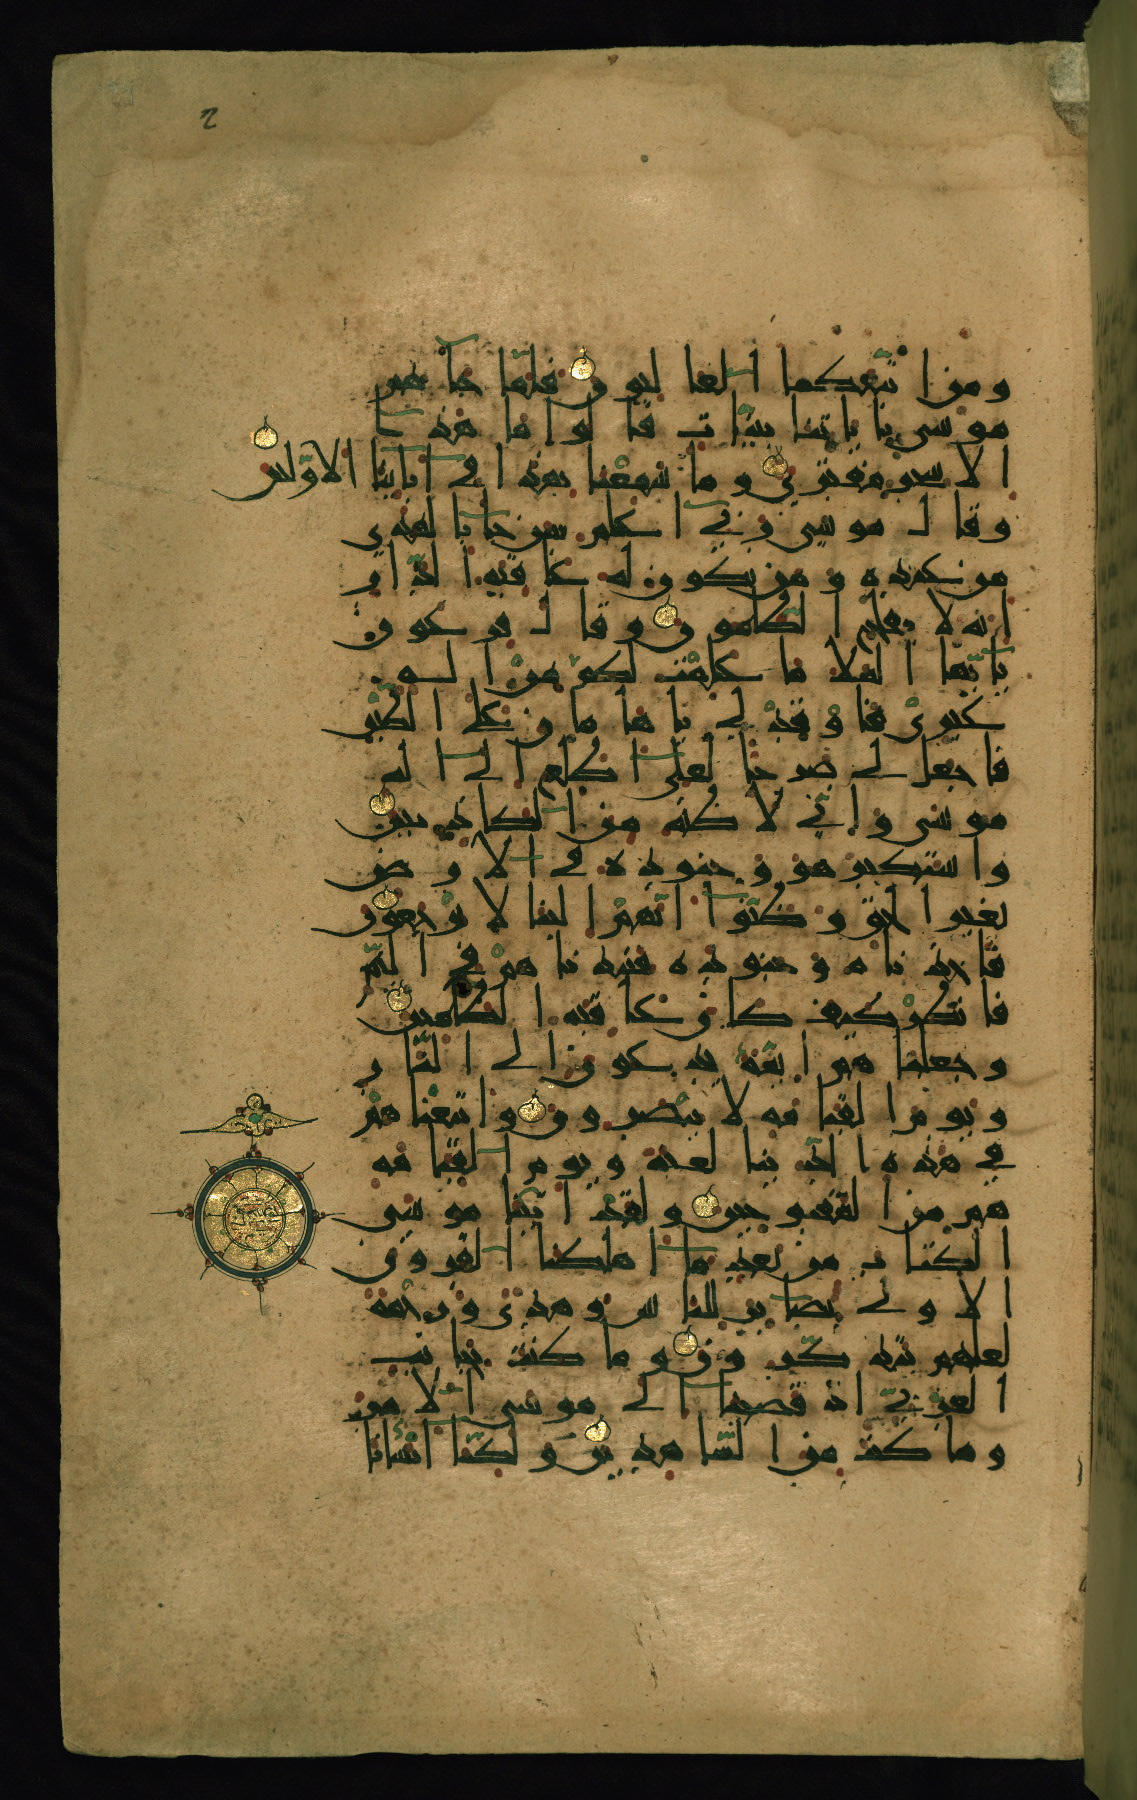 2
ومن اتبعكما الغالبون فلما جاهم
موسى باياتنا بينات قالوا ما هذا
الا سحر مفترى وما سمعنا بهذا في ابائنا الاولين
وقال موسى ربي اعلم بمن جا بالهدى
من عنده ومن يكون له عاقبه الدار
انه لا يفلح الظلمون وقال فرعون
يايها الملا ما علمت لكم من اله
غيرى فاوقد لي ياهامان على الطين
فاجعل لي صرحا لعلى اطلع الى اله
موسى واني لاظنه من الكاذبين
واستكبر هو وجنوده في الارض
بغير الحق وظنوا انهم الينا لا يرجعون
فاخذناه وجنوده فنبذناهم في اليم
فانظر كيف كان عاقبه الظلمين
وجعلناهم ايمه يدعون الى النار
ويوم القيامه لا ينصرون واتبعناهم
في هذه الدنيا لعنه ويوم القيامه
هم من المقبوحين ولقد اتينا موسى
الكتاب من بعد ما اهلكنا القرون
الاولى بصاير للناس وهدى ورحمه
لعلهم يتذكرون وما كنت بجانب
الغربي اذ قضينا الى موسى الامر
وما كنت من الشاهدين ولكنا انشانا